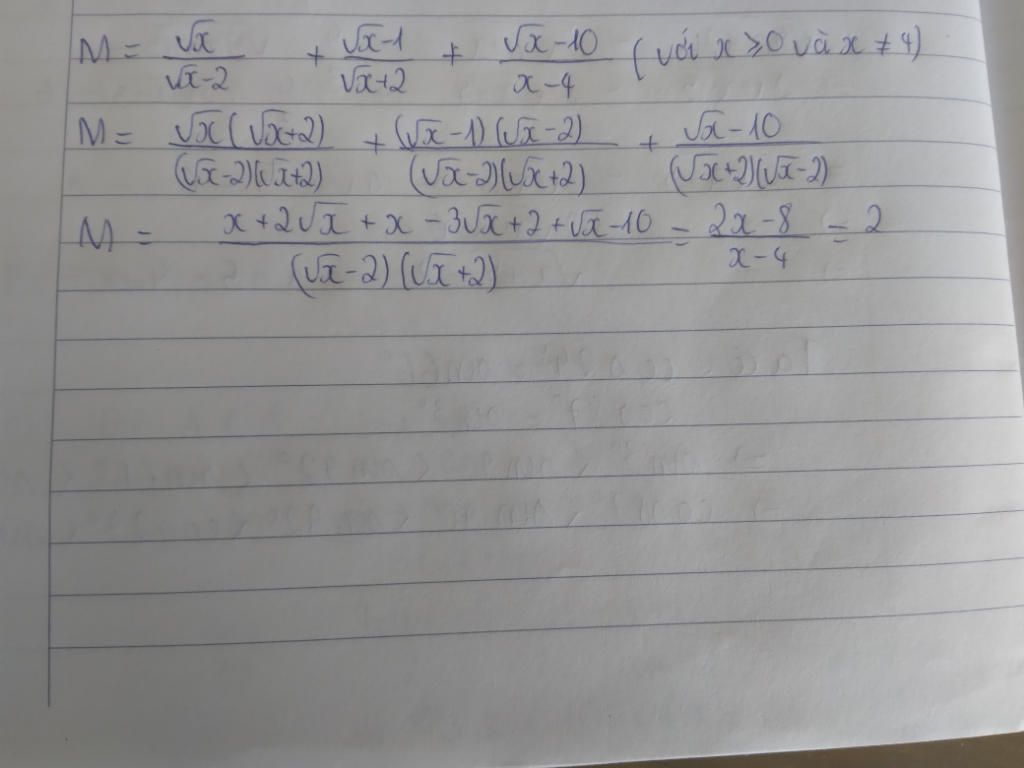 M = √x/(√x-2) + (√x-1)/(√x+2) + (√x-10)/(x-4) (với x ≥ 0 và x ≠ 4)
M = √x(√x+2)/((√x-2)(√x+2)) + (√x-1)(√x-2)/((√x-2)(√x+2)) + (√x-10)/((√x+2)(√x-2))
M = (x+2√x+x-3√x+2+√x-10)/((√x-2)(√x+2)) = (2x-8)/(x-4) = 2